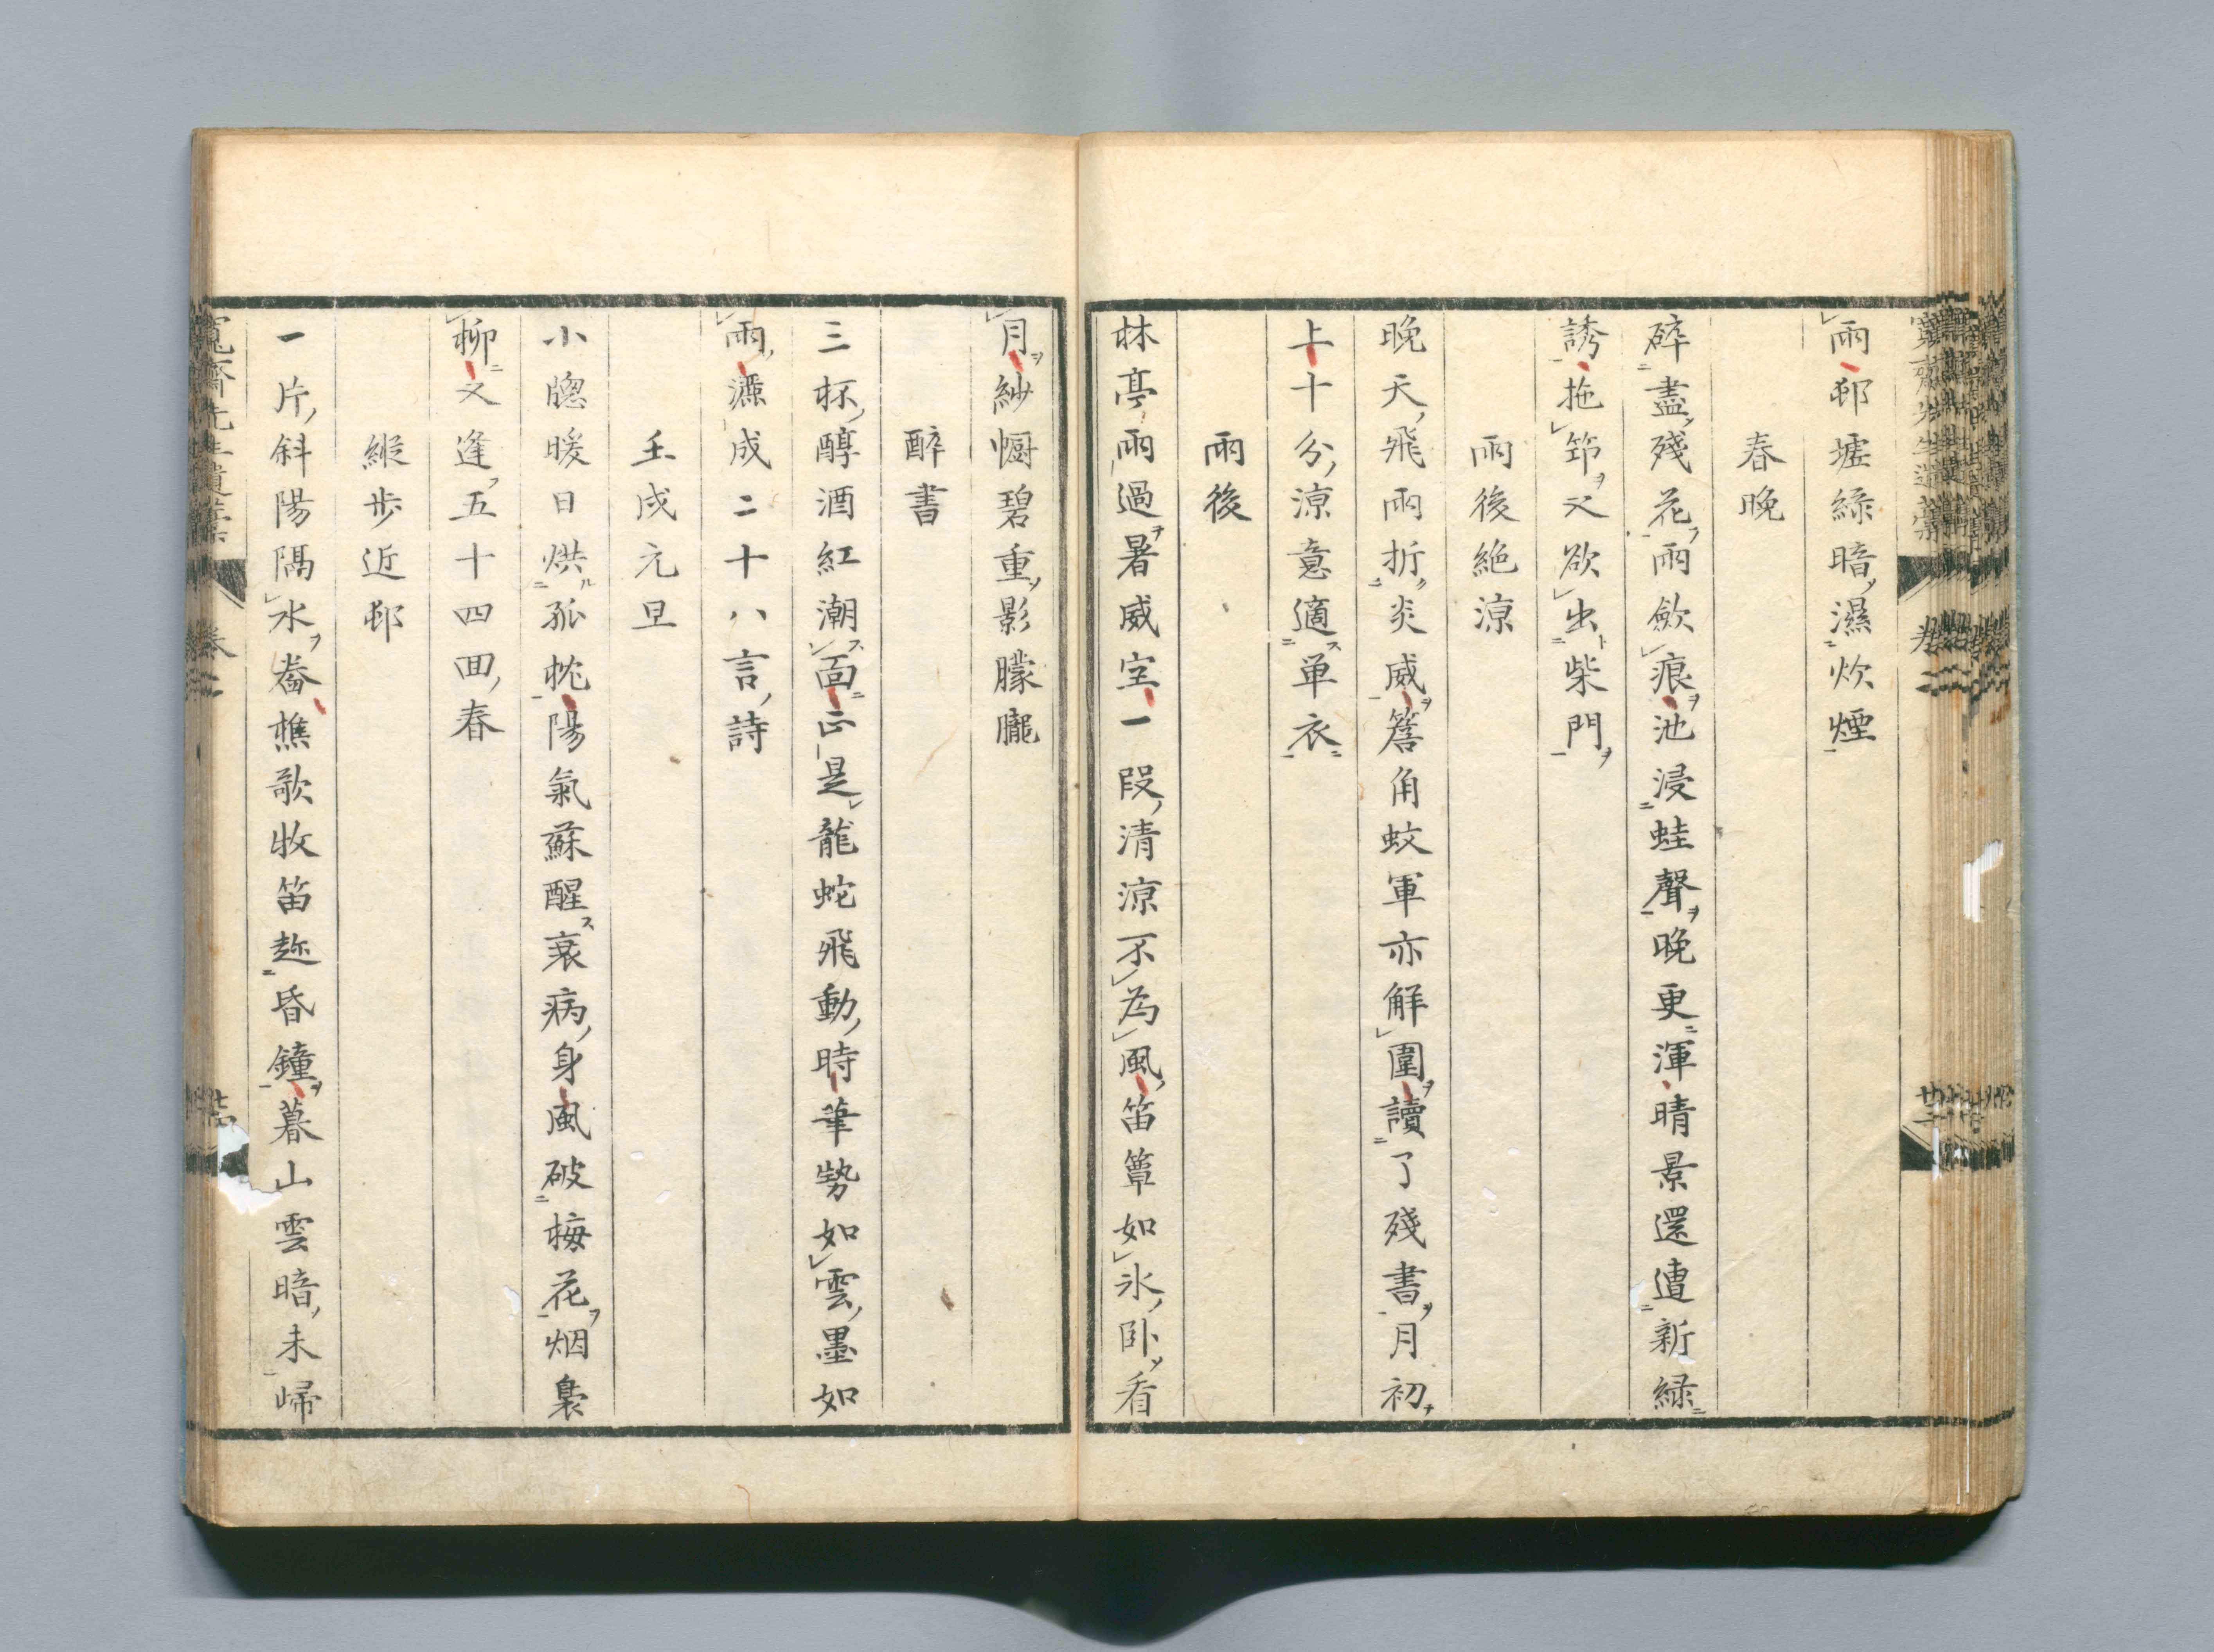 雨邨墟綠暗濕炊煙
春晚
碎盡殘花雨斂痕池浸蛙聲晚更渾晴景還遭新綠
誘拖筇又欲出柴門
雨後絶涼
晚天飛雨折炎威簷角蚊軍亦解圍讀了殘書月初
上十分涼意適単衣
雨後
林亭雨過暑威空一段清涼不為風笛簟如氷臥看
月紗㡡碧重影朦朧
醉書
三杯醇酒紅潮面正是龍蛇飛動時筆勢如雲墨如
雨灑成二十八言詩
壬戌元旦
小牕暖日烘孤枕陽氣蘇醒衰病身風破梅花烟裊
柳又逢五十四回春
縦歩近邨
一片斜陽隔水畨樵歌牧笛趂昏鐘暮山雲暗未歸
寬齋先生遺稾 卷二